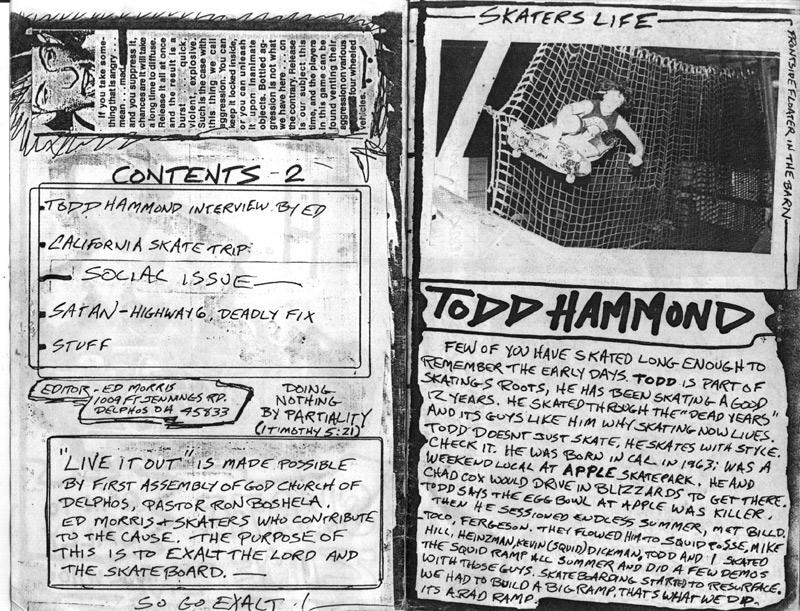 If you take some-
thing that is angry . . .
mean . . . mad . . .
and you suppress it,
chances are it will take
a long time to diffuse.
Release it all at once
and the result is a
burst of quick,
violent, explosive.
Such is the case with
this thing we call
aggression. You can
keep it locked inside,
or you can unleash
it upon inanimate
objects. Bottled ag-
gression is not what
we have here . . . on
the contrary. Release
is our subject this
time, and the players
in this game can be
found venting their
aggression on various
four wheeled
vehicles
CONTENTS - 2
TODD HAMMOND INTERVIEW BY ED
CALIFORNIA SKATE TRIP:
SOCIAL ISSUE
SATAN-HIGHWAY 6, DEADLY FIX
STUFF
EDITOR - ED MORRIS
1009 FT JENNINGS RD.
DELPHOS OH 45833
DOING
NOTHING
BY PARTIALITY
(1 TIMOTHY 5:21)
"LIVE IT OUT" IS MADE POSSIBLE
BY FIRST ASSEMBLY OF GOD CHURCH OF
DELPHOS, PASTOR RON BOSHELA.
ED MORRIS + SKATERS WHO CONTRIBUTE
TO THE CAUSE. THE PURPOSE OF
THIS IS TO EXALT THE LORD AND
THE SKATEBOARD.
SO GO EXALT.!
SKATERS LIFE
FRONTSIDE FLOATER IN THE BARN
TODD HAMMOND
FEW OF YOU HAVE SKATED LONG ENOUGH TO
REMEMBER THE EARLY DAYS. TODD IS PART OF
SKATINGS ROOTS, HE HAS BEEN SKATING A GOOD
12 YEARS. HE SKATED THROUGH THE "DEAD YEARS"
AND ITS GUYS LIKE HIM WHY SKATING NOW LIVES.
TODD DOESNT JUST SKATE, HE SKATES WITH STYLE.
CHECK IT. HE WAS BORN IN CAL. IN 1963; WAS A
WEEKEND LOCAL AT APPLE SKATEPARK. HE AND
CHAD COX WOULD DRIVE IN BLIZZARDS TO GET THERE.
TODD SAYS THE EGG BOWL AT APPLE WAS KILLER.
THEN HE SESSIONED ENDLESS SUMMER, MET BILL D.
TOCO, FERGESON. THEY FLOWED HIM TO SQUID POSSE, MIKE
HILL, HEINZMAN, KEVIN (SQUID) DICKMAN, TODD AND I SKATED
THE SQUID RAMP ALL SUMMER AND DID A FEW DEMOS
WITH THOSE GUYS. SKATEBOARDING STARTED TO RESURFACE.
WE HAD TO BUILD A BIG RAMP, THAT'S WHAT WE DID.
ITS A RAD RAMP.